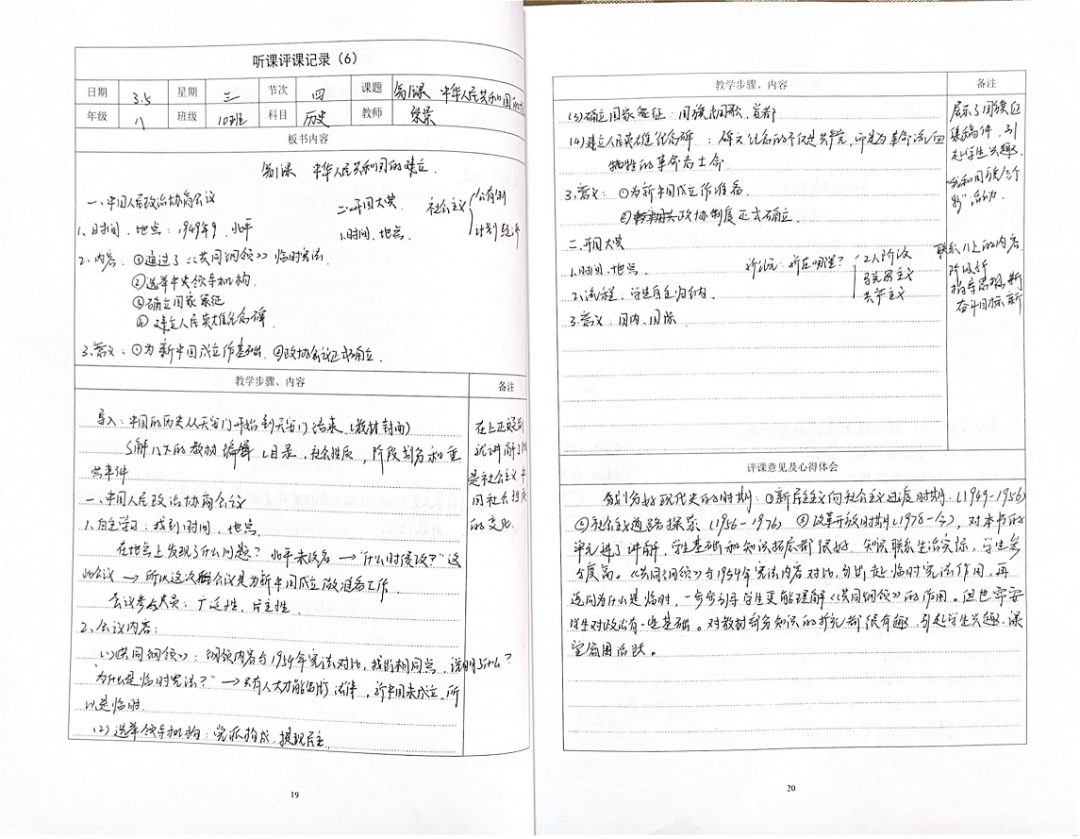 听课评课记录（6）
日期 3.5 星期 三 节次 四 课题 第1课 中华人民共和国的
年级 八 班级 10班 科目 历史 教师
板书内容
第1课 中华人民共和国的建立.
一、中国人民政治协商会议
1、时间、地点：1949年9、北平
2、内容：①通过了《共同纲领》临时宪法.
②选举中央领导机构.
③确立国家象征
④建立人民英雄纪念碑
3、意义：①为新中国成立作基础.②政协会议正式确立.
二、开国大典.
1、时间、地点.
社会主义 公有制
计划经济
教学步骤、内容 备注
导入：中国的历史从天安门开始到天安门结束.（教材封面）
了解八下的教材编辑（目录、社会性质，阶段划分和重
大事件
一、中国人民政治协商会议
1、自主学习：找到时间、地点
在地点上发现了什么问题？北平未改名→"什么时候改？"这
此会议→所以这次会议是为新中国成立做准备工作.
会议参会人员：广泛性、民主性.
2、会议内容：
(1)《共同纲领》：纲领内容与1954年宪法对比，找出相同点、说明了什么？
"为什么是临时宪法？"→只有人大才能制定法律，新中国未成立，所
以是临时.
(2)选举领导机构：党派构成、提现民主.
在上正课前
就讲解了
是社会主义 中
国社会性质
的变化.
19
教学步骤、内容 备注
(3)确立国家象征：国旗、国歌、首都
(4)建立人民英雄纪念碑：碑文纪念的不仅是共产党，而是为革命流血
牺牲的革命者士命.
3、意义：①为新中国成立作准备.
②政协制度正式确立.
二、开国大典
1、时间、地点.
2、流程：学生自主归纳.
3、意义：国内、国际
新纪元：新在哪里？ 2人阶级
马克思主义
共产主义
展示了国旗征
集稿件，引
起学生兴趣.
"我和国旗合个
影"活动.
联系八上的内容
阶级新
指导思想新
奋斗目标新
评课意见及心得体会
划分好现代史的时期：①新民主主义向社会主义过渡时期：（1949-1956）
②社会主义道路探索（1956-1976）③改革开放时期（1978-今），对本书的
单元进了讲解，学生基础和知识拓展都很好、知识联系生活实际，学生参
与度高。《共同纲领》与1954年宪法内容对比，勾出起临时宪法作用，再
追问为什么是临时，一步步引导学生更能理解《共同纲领》的作用。但也需要
学生对政治有一些基础。对教材部分知识的拓充都很有趣，引起学生兴趣，课
堂氛围活跃。
20